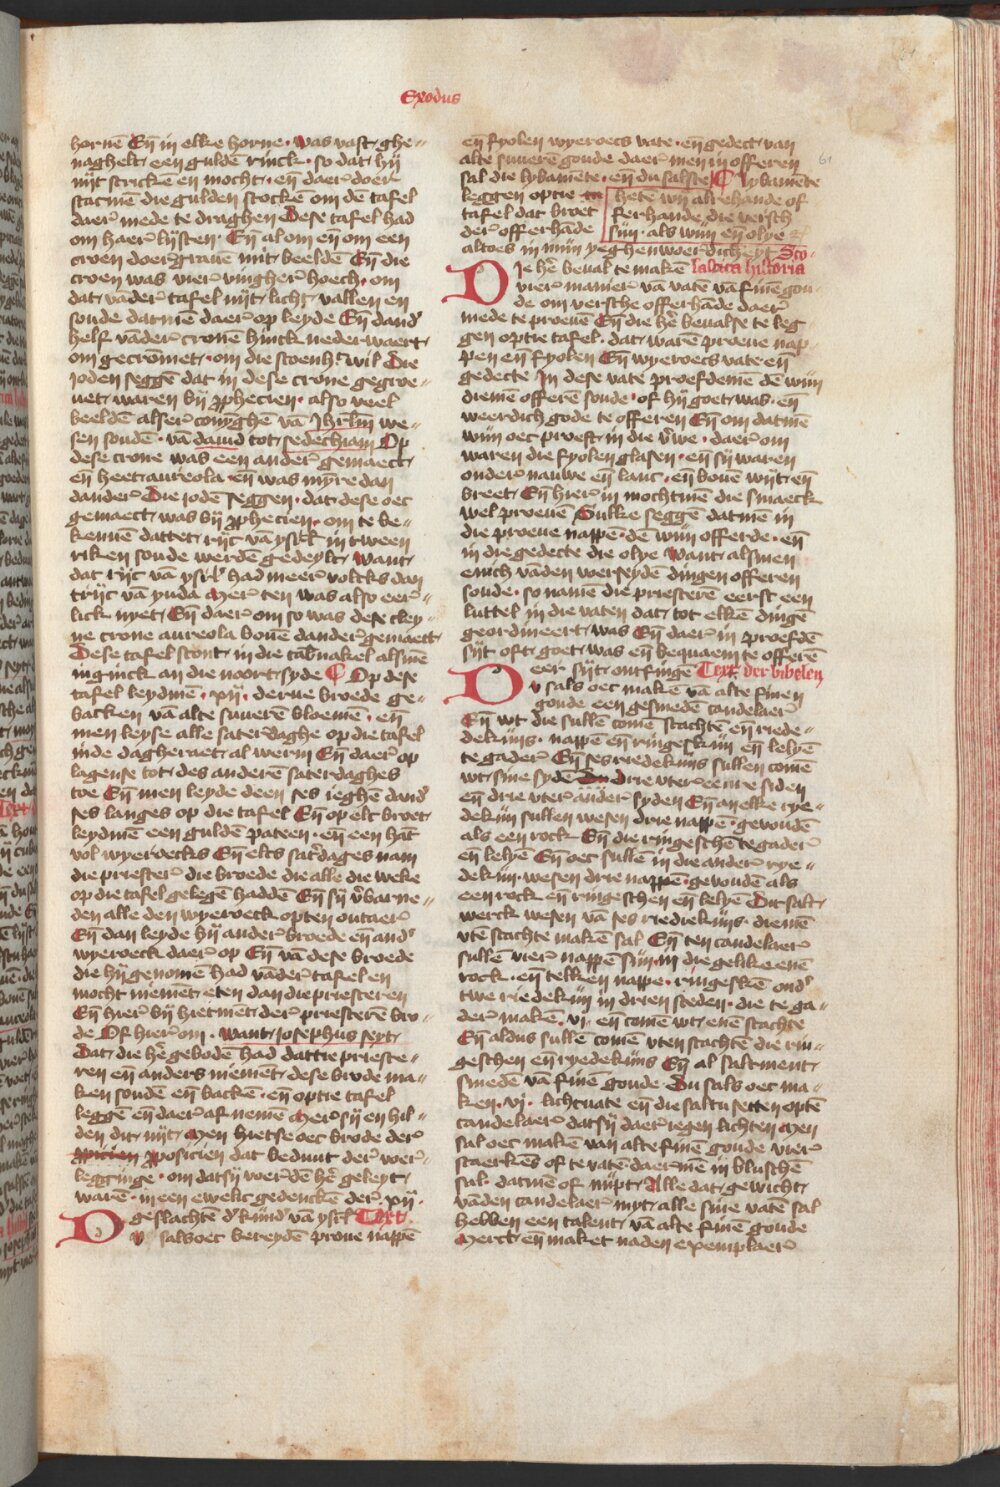 Exodus
hornē Eñ in elke horne · was vast ghe-
naghelt een guldē rinck · so dat hij
nijt strickē en mocht · eñ daer doer
stacmē die guldē stockē om dē tafel
daer mede te draghen Dese tafel had
om haer lijsten · Eñ al om eñ om een
croen doergrauē mit beeldē Eñ die
croen was vier vingher hoech · om
dat vāder tafel nijt licht vallen en
soude datmē daer op leyde Eñ dand
helf vāder cronē hinck nederwaert
om gecrōmet · om die scoenh wil Die
joden seggē dat in dese crone gegroe-
uet waren bij pphecien · also veel
beeldē alser conīghē vā Jhrlm we-
sen soudē · vā dauid tot sedechiam Op
dese crone was een ander gemaect
eñ heet aureola · eñ was mijre dan
dander Die jodē seggen · dat dese oec
gemaect was bij pphecien · om te be-
kennē dattet rijc vā ysrl in tween
riken soude werdē gedeylt want
dat rijc vā ysrl had meer volcks dan
trijc vā yuda Mer ten was also eer-
lick nyet Eñ daer om so was dese cley-
ne crone aureola bouē dander gemaect
Dese tafel stont in die tabnakel alsmē
in ginck an die noortsyde C Op dese
tafel leydmē · xij · derue broede ge-
backen vā alte suuerē bloemē · eñ
men leyse alle saterdaghe op die tafel
inde dagheraet al werm Eñ daer op
lagense tot des anderē saterdaghes
toe Eñ men leyde deen ses ieghē dand
ses langes op die tafel Eñ op elc broet
leydmē een guldē pateen · eñ een hāt
vol wyeroecks Eñ elcs satdages nam
die priester die broede die alle die weke
op die tafel gelegē haddē Eñ sij vbarne-
den alle den wyeroeck opten outaer
Eñ dan leyde hij ander broede eñ and
wyeroeck daer op Eñ vā dese broede
die hij genomē had vāder tafel en
mocht niemēt eten dan die priesteren
Eñ hier bij hietmēt der priesterē bro-
de Of hier om · want josephus seyt
Dat die hē gebodē had dattie prieste-
ren eñ anders niemēt dese brode ma-
ken soudē eñ backē · eñ op tie tafel
leggē eñ daer af nemē Mer sij en hil-
den dit nijt Men hietse oec brode der
pposicien dat beduut der woer-
legginge · om datsij werdē hē geleyt
warē · in een ewelic gedenckē der xij ·
geslachtē d kīnd vā ysrl Text
Du salsoec bereydē proue nappē
eñ fyolen wyeroecs vate · eñ gedect van
alte suuerē goude daer men in offeren
sal die lybamēte · eñ du salste C Lybamēte
leggen op tie hetē wij alrehande of
tafel dat broet ferhande die versch
der offerhāde sijn · als wijn eñ olye
altoes in mijn yeghenwoerdicheyt Sco-
Die hē beual te makē lastica historia
vier manier vā vatē vā fijnē gou-
de om versche offerhāde daer
mede te proeuē Eñ die hē beualse te leg-
gen op tie tafel · dat warē proeue nap-
pen eñ fyolen Eñ wyeroecs vate eñ
gedecte In dese vate proefdemē dē wijn
diemē offerē soude · of hij goet was · eñ
weerdich gode te offeren Eñ om datmē
wijn oec proeft in die vrwe · daer om
waren die fyolen glasen · eñ sij waren
onder nauwe eñ lanc · eñ bouē wijt eñ
breet Eñ hier in mochtmē die smaeck
wel proeuē Sulke seggē datmē in
die proeue nappē · dē wijn offerde · eñ
in die gedecte die olye Want alsmen
enich vāden voerseydē dingen offeren
soude · so namē die priesterē eerst een
luttel in die vaten dat tot elkē dingē
geordineert was Eñ daer in proefdē
sijt oft goet was eñ bequaem te offerē
eer sijt ontfingē Text der bibelen
Du sals oec makē vā alte fijnen
goude een gesmedē candelaer
Eñ wt die sullē comē stachtē eñ riede-
dekijns · nappē eñ ringeskijn eñ lelyē
te gader Eñ ses riedekijns sullen comē
wt sine sydē drie vter eenre siden
eñ drie vter ander syden Eñ an elke rye-
dekijn sullen wesen drie nappē · gewoudē
als een rock Eñ die ringeschē te gader
eñ lelyē Eñ oec sullē in die ander rye-
dekijn · wesen drie nappē · gewoudē als
een rock eñ ringeschen eñ lelyē Dit salt
werck wesen vā ses riediekijns · diemē
vtē stachte makē sal Eñ ten candelaer
sullē vier nappē sijn · in die gelike enē
rock · eñ telken nappe · ringeskē ond
twe riedekijn in drien steden · die te ga-
der makē · vi · eñ comē wt enē stachte
Eñ aldus sullē comē vten stachtē die rin-
geschen eñ ryedekijns Eñ al saltment
smedē vā fijnē goude Du sals oec ma-
ken · vij · lichtvate eñ die saltu setten optē
candelaer datsij daer iegen lichten Men
sal oec makē van alte fijnē goude vier
staerkēs of te vatē daermē in bluschē
sal · datmē of nijpt Alle dat gewicht
vāden candelaer mijt alle sine vatē sal
hebben een talent vā alte fijnē goude
Merct eñ maket na den exemplaer